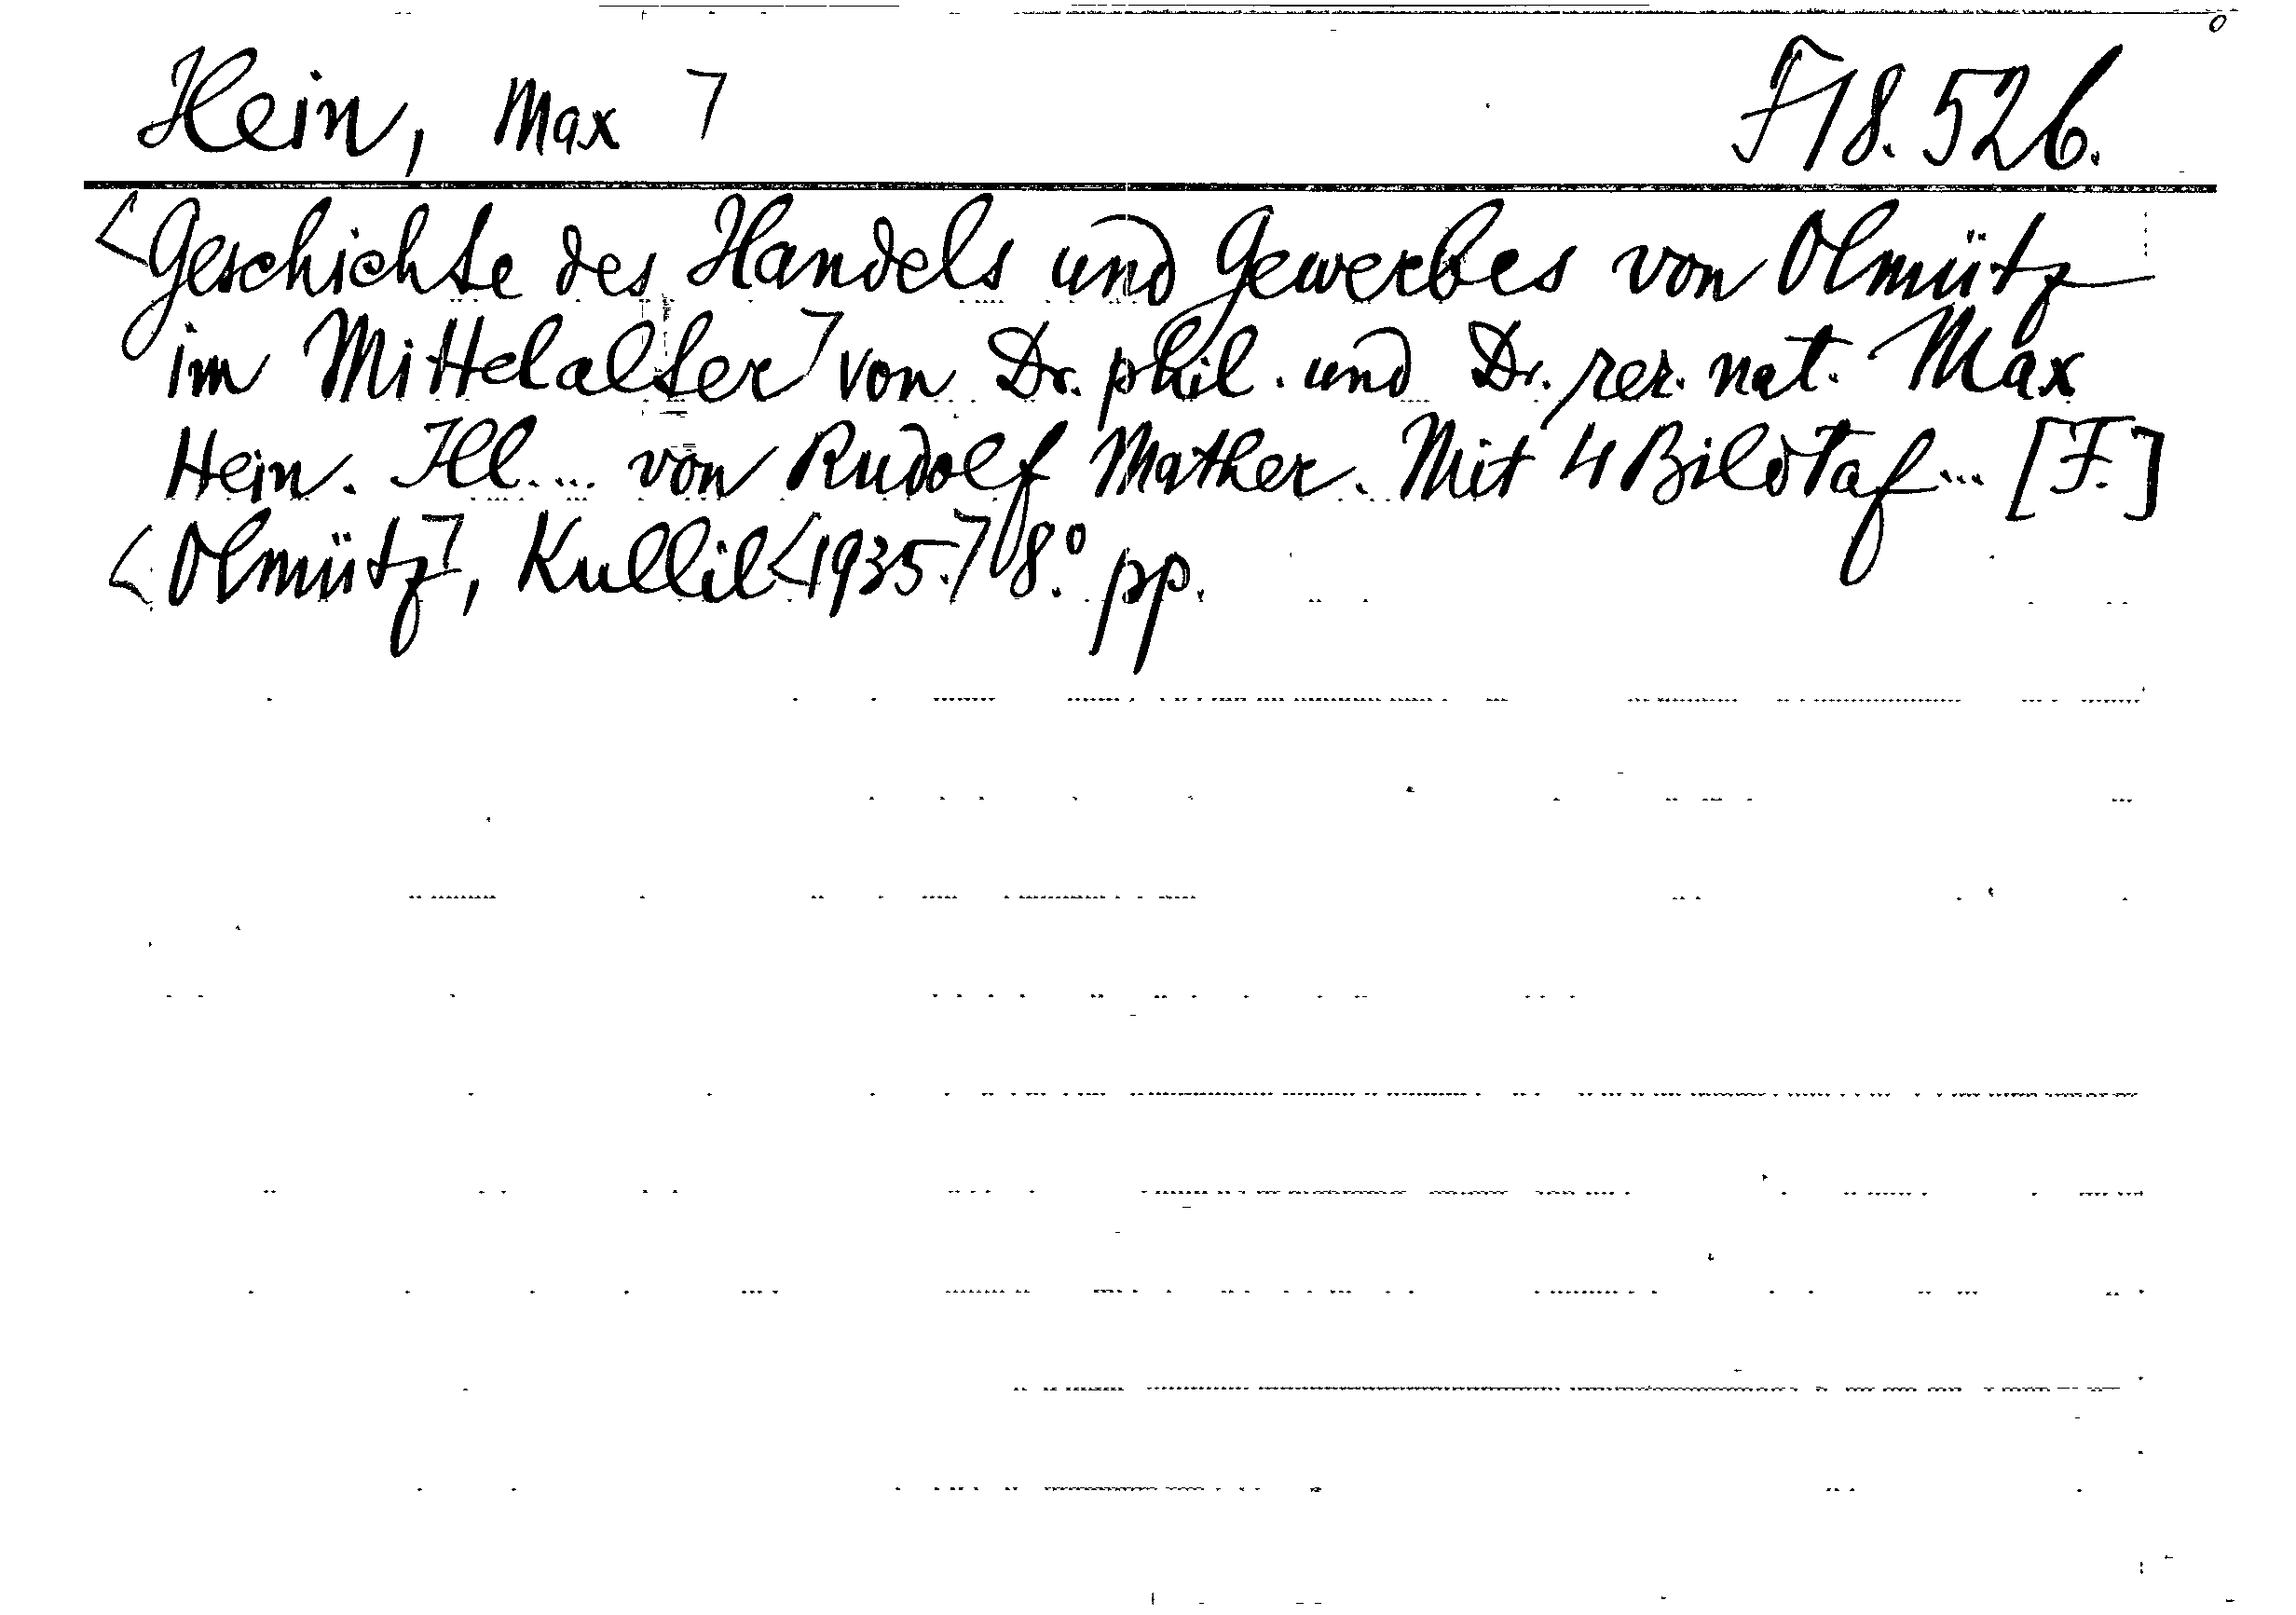 Hein, Max ⌉ F 18.526.
<Geschichte des Handels und Gewerbes von Olmütz
im Mittelalter⌉ von Dr. phil. und Dr. rer. nat. Max
Hein. Ill... von Rudolf Mather. Mit 4 Bildtaf... [F.]
<Olmütz⌉, Kullil <1935.⌉ 8.° pp.